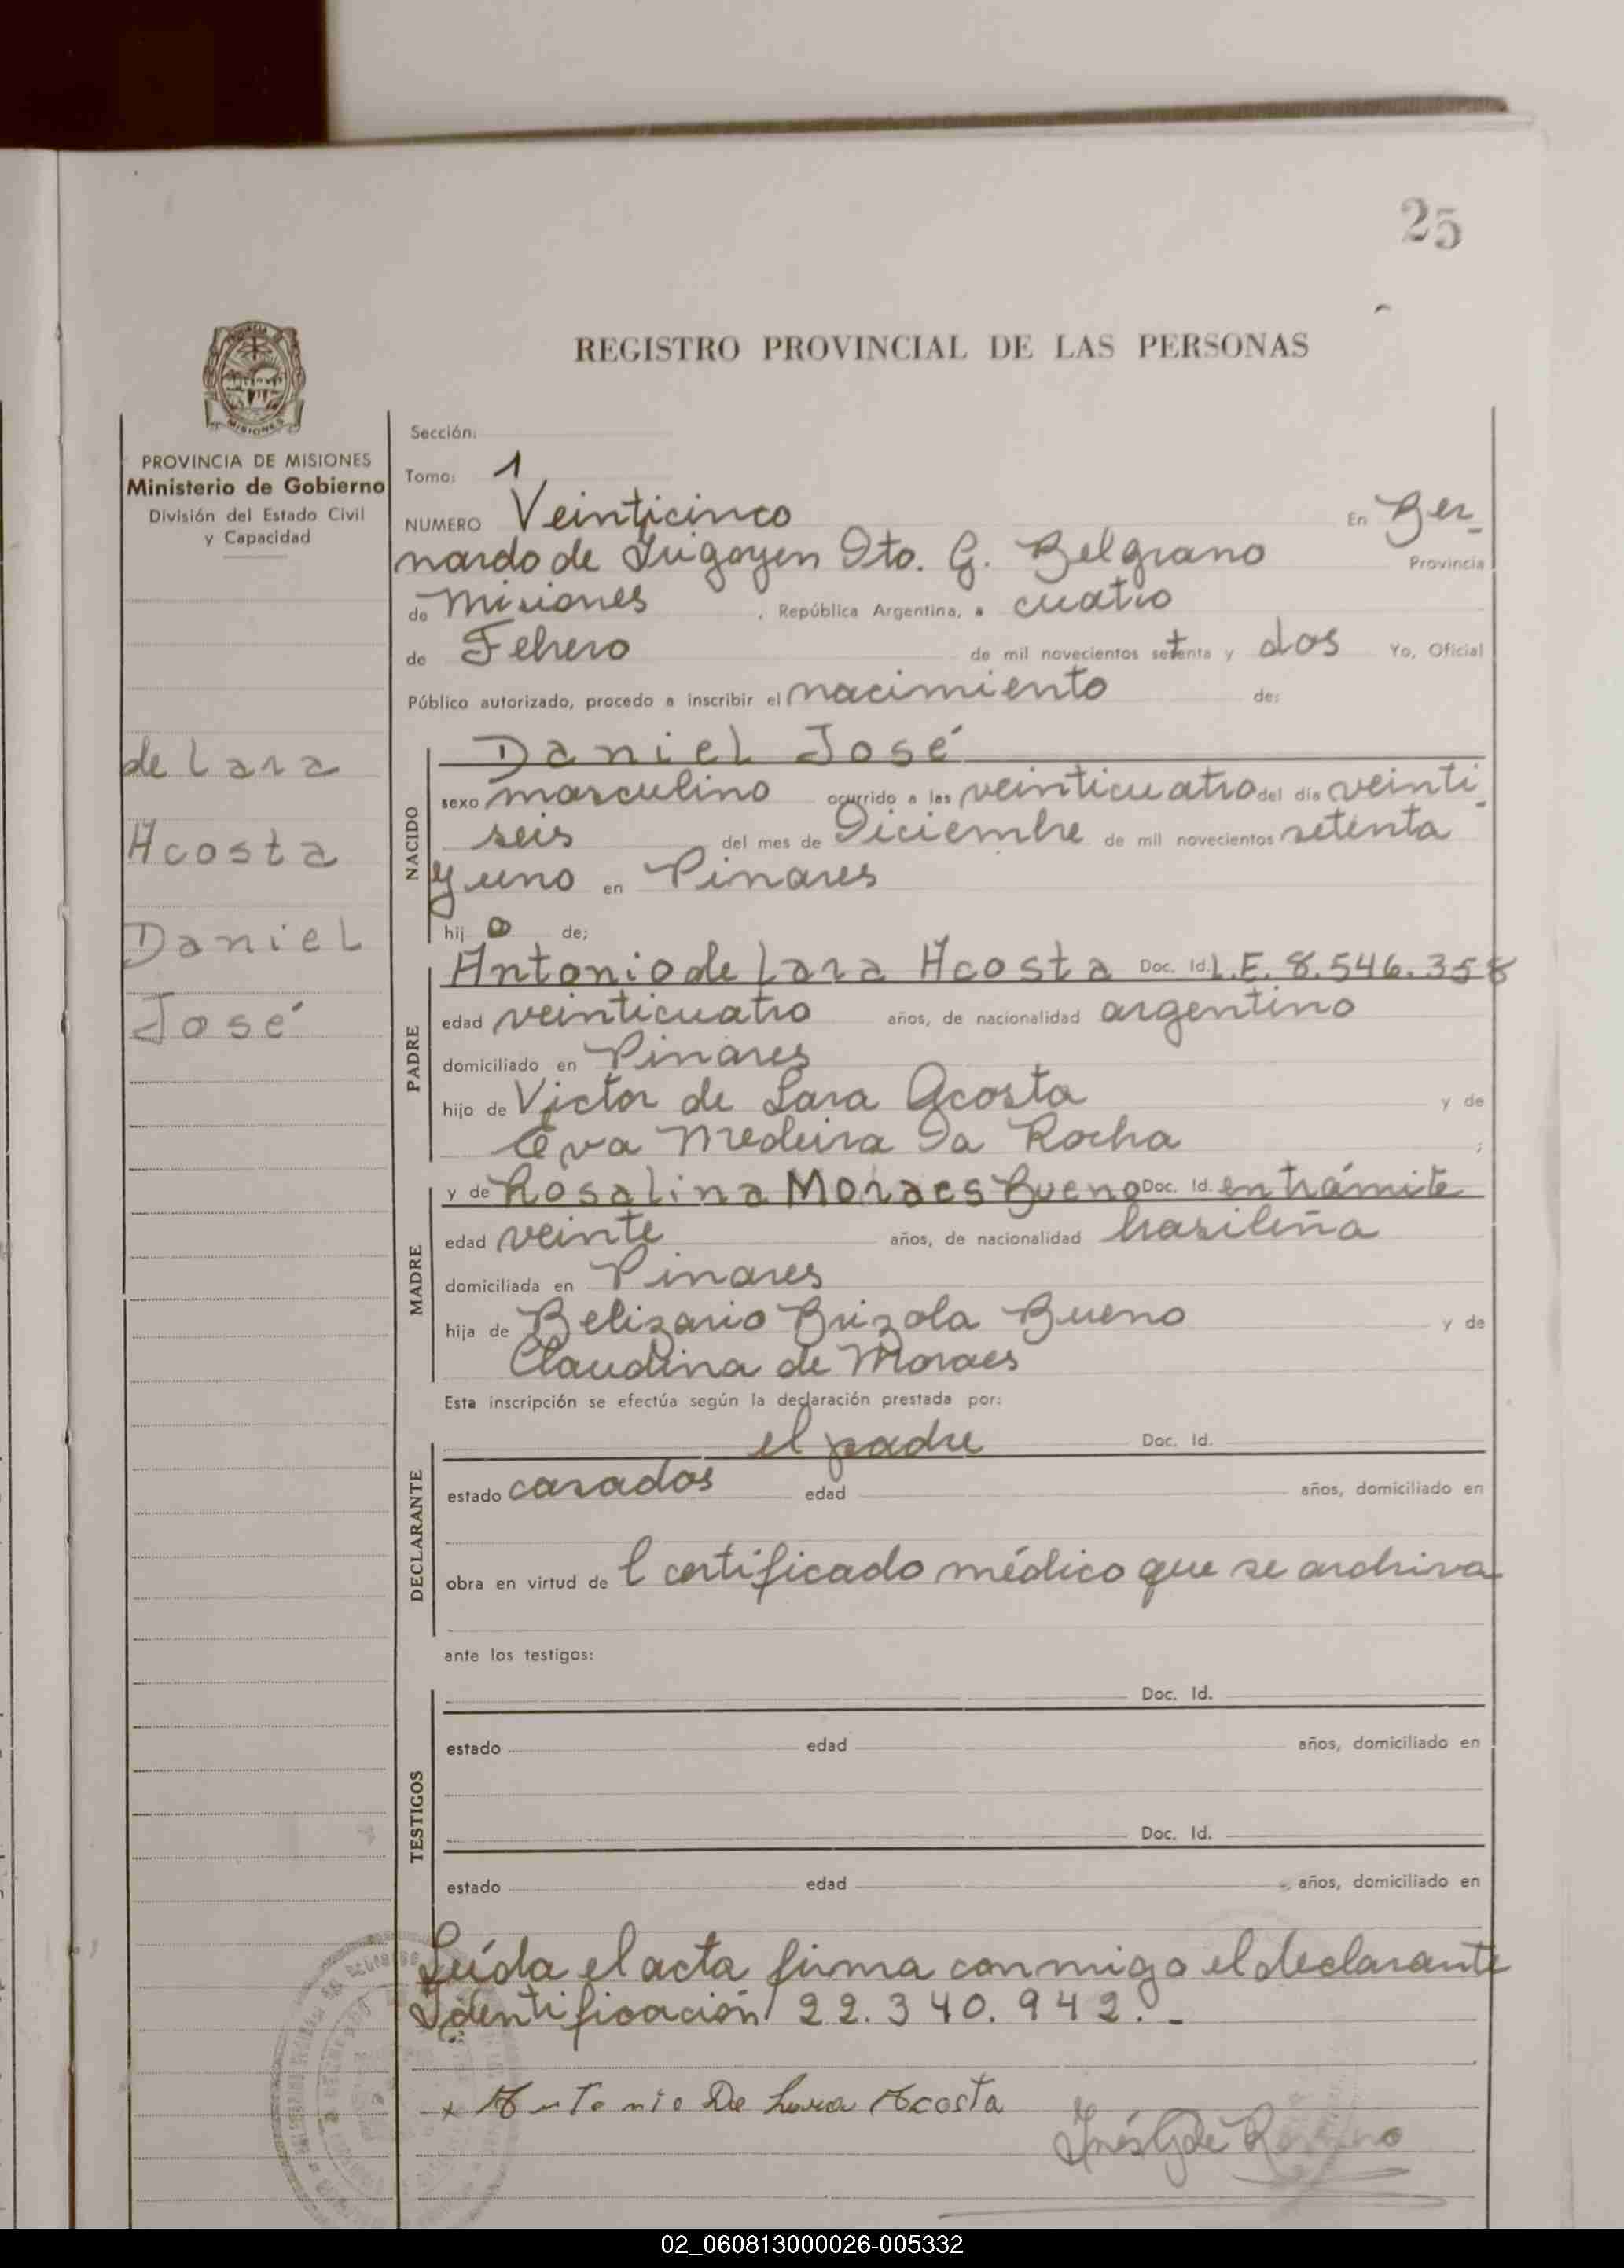 25
REGISTRO PROVINCIAL DE LAS PERSONAS
MISIONES
PROVINCIA DE MISIONES
Ministerio de Gobierno
División del Estado Civil
y Capacidad
de Lara
Acosta
Daniel
José
Sección:
Tomo: 1
NUMERO Veinticinco En Ber-
nardo de Irigoyen Dto. G. Belgrano Provincia
de Misiones , República Argentina, a cuatro
de Febrero de mil novecientos setenta y dos Yo, Oficial
Público autorizado, procedo a inscribir el nacimiento de:
NACIDO
Daniel José
sexo masculino ocurrido a las veinticuatro del día veinti-
seis del mes de Diciembre de mil novecientos setenta
y uno en Pinares
hij o de;
PADRE
Antonio de Lara Acosta Doc. Id. L.E. 8.546.358
edad veinticuatro años, de nacionalidad argentino
domiciliado en Pinares
hijo de Victor de Lara Acosta y de
Eva Medeira Da Rocha ;
MADRE
y de Rosalina Moraes Bueno Doc. Id. en trámite
edad veinte años, de nacionalidad brasileña
domiciliada en Pinares
hija de Belizario Brizola Bueno y de
Claudina de Moraes
Esta inscripción se efectúa según la declaración prestada por:
DECLARANTE
el padre Doc. Id.
estado casados edad años, domiciliado en
obra en virtud de l certificado médico que se archiva
ante los testigos:
TESTIGOS
Doc. Id.
estado edad años, domiciliado en
Doc. Id.
estado edad años, domiciliado en
Leída el acta firma conmigo el declarante
Identificación 22.340.942.-
x Antonio De Lara Acosta
Inés G de
02_060813000026-005332